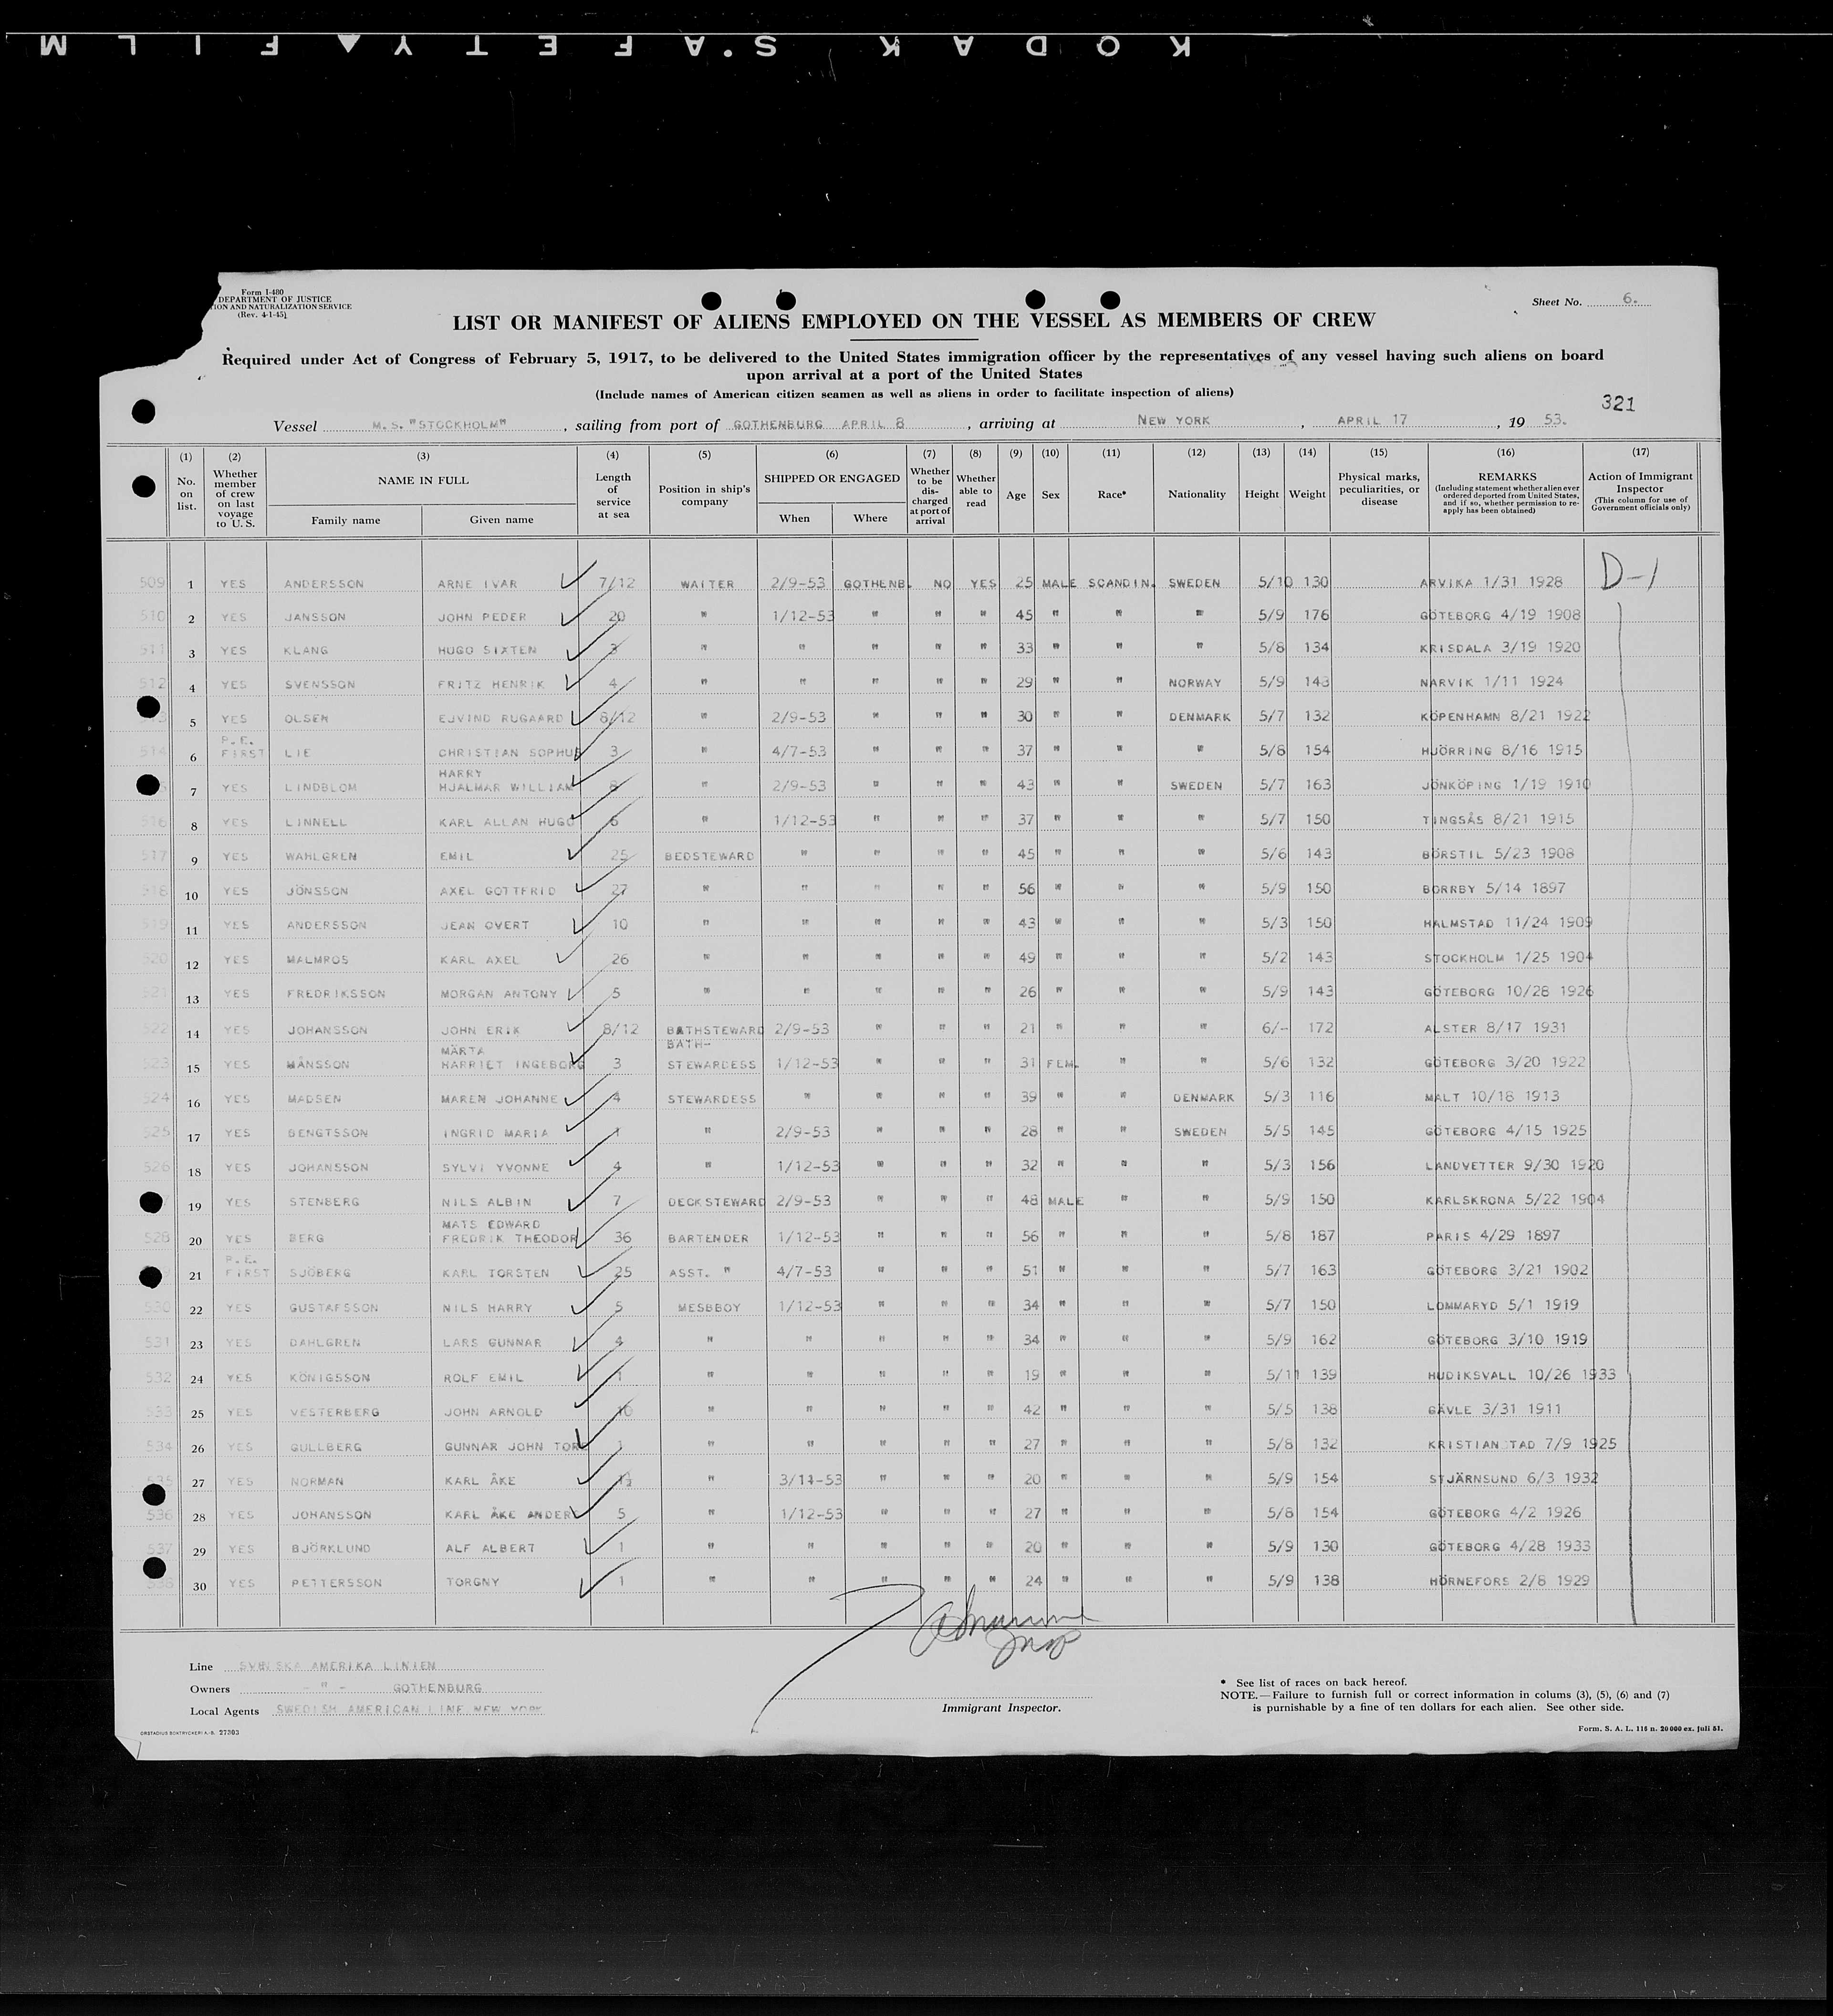 KODAK SAFETY FILM
Form I-480
DEPARTMENT OF JUSTICE
ION AND NATURALIZATION SERVICE
(Rev. 4-1-45)
Sheet No. 6.
LIST OR MANIFEST OF ALIENS EMPLOYED ON THE VESSEL AS MEMBERS OF CREW
Required under Act of Congress of February 5, 1917, to be delivered to the United States immigration officer by the representatives of any vessel having such aliens on board
upon arrival at a port of the United States
(Include names of American citizen seamen as well as aliens in order to facilitate inspection of aliens)
321
Vessel M.S. "STOCKHOLM", sailing from port of GOTHENBURG APRIL 8, arriving at NEW YORK, APRIL 17, 19 53.
(1) (2) (3) (4) (5) (6) (7) (8) (9) (10) (11) (12) (13) (14) (15) (16) (17)
No. on list. Whether member of crew on last voyage to U. S. NAME IN FULL Family name Given name Length of service at sea Position in ship's company SHIPPED OR ENGAGED When Where Whether to be discharged at port of arrival Whether able to read Age Sex Race* Nationality Height Weight Physical marks, peculiarities, or disease REMARKS (Including statement whether alien ever ordered deported from United States, and if so, whether permission to re-apply has been obtained) Action of Immigrant Inspector (This column for use of Government officials only)
509 1 YES ANDERSSON ARNE IVAR 7/12 WAITER 2/9-53 GOTHENB. NO YES 25 MALE SCANDIN. SWEDEN 5/10 130 ARVIKA 1/31 1928 D-1
510 2 YES JANSSON JOHN PEDER 20 " 1/12-53 " " " 45 " " " 5/9 176 GÖTEBORG 4/19 1908
511 3 YES KLANG HUGO SIXTEN 3 " " " " " 33 " " " 5/8 134 KRISDALA 3/19 1920
512 4 YES SVENSSON FRITZ HENRIK 4 " " " " " 29 " " NORWAY 5/9 143 NARVIK 1/11 1924
5 YES OLSEN EJVIND RUGAARD 8/12 " 2/9-53 " " " 30 " " DENMARK 5/7 132 KÖPENHAMN 8/21 1922
514 6 P.E. FIRST LIE CHRISTIAN SOPHUS 3 " 4/7-53 " " " 37 " " " 5/8 154 HJÖRRING 8/16 1915
7 YES LINDBLOM HARRY HJALMAR WILLIAM 8 " 2/9-53 " " " 43 " " SWEDEN 5/7 163 JÖNKÖPING 1/19 1910
516 8 YES LINNELL KARL ALLAN HUGO 6 " 1/12-53 " " " 37 " " " 5/7 150 TINGSÅS 8/21 1915
517 9 YES WAHLGREN EMIL 25 BEDSTEWARD " " " " 45 " " " 5/6 143 BÖRSTIL 5/23 1908
518 10 YES JÖNSSON AXEL GOTTFRID 27 " " " " " 56 " " " 5/9 150 BORRBY 5/14 1897
519 11 YES ANDERSSON JEAN OVERT 10 " " " " " 43 " " " 5/3 150 HALMSTAD 11/24 1909
520 12 YES MALMROS KARL AXEL 26 " " " " " 49 " " " 5/2 143 STOCKHOLM 1/25 1904
521 13 YES FREDRIKSSON MORGAN ANTONY 5 " " " " " 26 " " " 5/9 143 GÖTEBORG 10/28 1926
522 14 YES JOHANSSON JOHN ERIK 8/12 BATHSTEWARD 2/9-53 " " " 21 " " " 6/- 172 ALSTER 8/17 1931
523 15 YES MÅNSSON MÄRTA HARRIET INGEBORG 3 BATH-STEWARDESS 1/12-53 " " " 31 FEM. " " 5/6 132 GÖTEBORG 3/20 1922
524 16 YES MADSEN MAREN JOHANNE 4 STEWARDESS " " " " 39 " " DENMARK 5/3 116 MALT 10/18 1913
525 17 YES BENGTSSON INGRID MARIA 1 " 2/9-53 " " " 28 " " SWEDEN 5/5 145 GÖTEBORG 4/15 1925
526 18 YES JOHANSSON SYLVI YVONNE 4 " 1/12-53 " " " 32 " " " 5/3 156 LANDVETTER 9/30 1920
19 YES STENBERG NILS ALBIN 7 DECKSTEWARD 2/9-53 " " " 48 MALE " " 5/9 150 KARLSKRONA 5/22 1904
528 20 YES BERG MATS EDWARD FREDRIK THEODOR 36 BARTENDER 1/12-53 " " " 56 " " " 5/8 187 PARIS 4/29 1897
21 P.E. FIRST SJÖBERG KARL TORSTEN 25 ASST. " 4/7-53 " " " 51 " " " 5/7 163 GÖTEBORG 3/21 1902
530 22 YES GUSTAFSSON NILS HARRY 5 MESBBOY 1/12-53 " " " 34 " " " 5/7 150 LOMMARYD 5/1 1919
531 23 YES DAHLGREN LARS GUNNAR 4 " " " " " 34 " " " 5/9 162 GÖTEBORG 3/10 1919
532 24 YES KÖNIGSSON ROLF EMIL 1 " " " " " 19 " " " 5/11 139 HUDIKSVALL 10/26 1933
533 25 YES VESTERBERG JOHN ARNOLD 10 " " " " " 42 " " " 5/5 138 GÄVLE 3/31 1911
534 26 YES GULLBERG GUNNAR JOHN TORE 1 " " " " " 27 " " " 5/8 132 KRISTIANSTAD 7/9 1925
535 27 YES NORMAN KARL ÅKE 1½ " 3/11-53 " " " 20 " " " 5/9 154 STJÄRNSUND 6/3 1932
536 28 YES JOHANSSON KARL ÅKE ANDER 5 " 1/12-53 " " " 27 " " " 5/8 154 GÖTEBORG 4/2 1926
537 29 YES BJÖRKLUND ALF ALBERT 1 " " " " " 20 " " " 5/9 130 GÖTEBORG 4/28 1933
538 30 YES PETTERSSON TORGNY 1 " " " " " 24 " " " 5/9 138 HÖRNEFORS 2/8 1929
Line SVENSKA AMERIKA LINIEN
Owners - " - GOTHENBURG
Local Agents SWEDISH AMERICAN LINE NEW YORK
Immigrant Inspector.
* See list of races on back hereof.
NOTE.—Failure to furnish full or correct information in colums (3), (5), (6) and (7)
is punishable by a fine of ten dollars for each alien. See other side.
ORSTADIUS BOKTRYCKERI A.-B. 27303
Form. S. A. L. 116 n. 20 000 ex. juli 51.